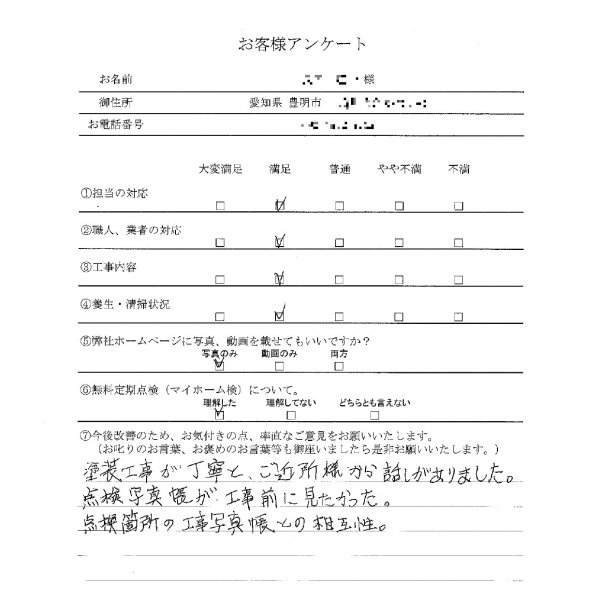 お客様アンケート
お名前 様
御住所 愛知県 豊明市
お電話番号
大変満足 満足 普通 やや不満 不満
①担当の対応 □ ☑ □ □ □
②職人、業者の対応 □ ☑ □ □ □
③工事内容 □ ☑ □ □ □
④養生・清掃状況 □ ☑ □ □ □
⑤弊社ホームページに写真、動画を載せてもいいですか？
写真のみ 動画のみ 両方
☑ □ □
⑥無料定期点検（マイホーム検）について。
理解した 理解してない どちらとも言えない
☑ □ □
⑦今後改善のため、お気付きの点、率直なご意見をお願いいたします。
（お叱りのお言葉、お褒めのお言葉等も御座いましたら是非お願いいたします。）
塗装工事が丁寧と、ご近所様から話しがありました。
点検写真帳が工事前に見たかった。
点検箇所の工事写真帳との相互性。